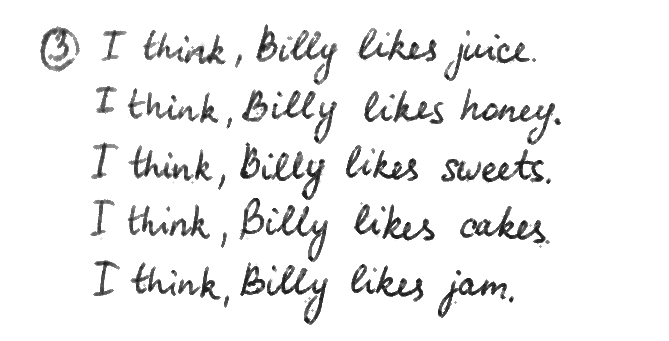 ③ I think, Billy likes juice.
I think, Billy likes honey.
I think, Billy likes sweets.
I think, Billy likes cakes.
I think, Billy likes jam.